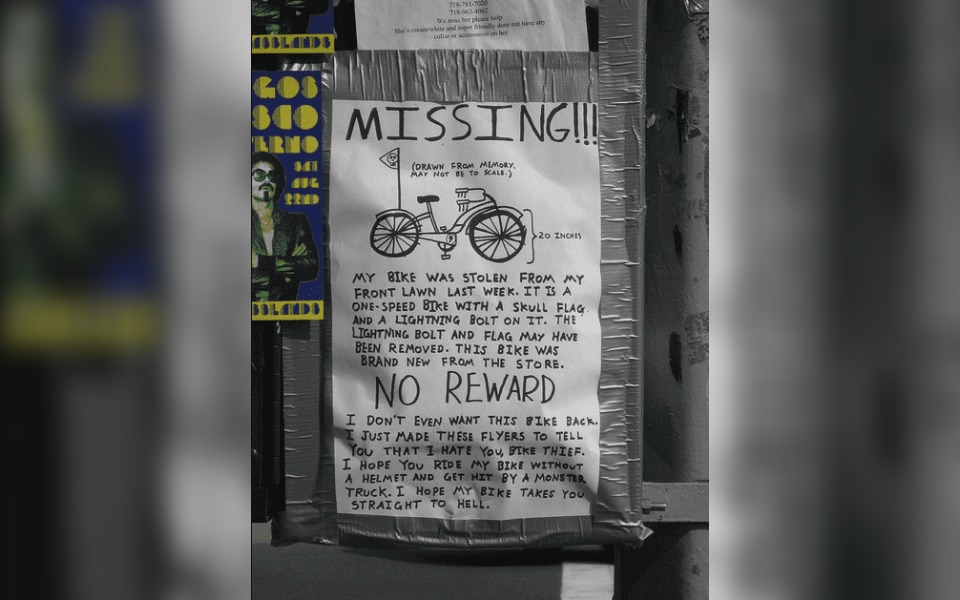 718-781-7020
718-963-4062
We miss her please help
She's cream/white and super friendly does not have any
collar or accessories on her
MISSING!!!
(DRAWN FROM MEMORY.
MAY NOT BE TO SCALE.)
20 INCHES
MY BIKE WAS STOLEN FROM MY
FRONT LAWN LAST WEEK. IT IS A
ONE-SPEED BIKE WITH A SKULL FLAG
AND A LIGHTNING BOLT ON IT. THE
LIGHTNING BOLT AND FLAG MAY HAVE
BEEN REMOVED. THIS BIKE WAS
BRAND NEW FROM THE STORE.
NO REWARD
I DON'T EVEN WANT THIS BIKE BACK.
I JUST MADE THESE FLYERS TO TELL
YOU THAT I HATE YOU, BIKE THIEF.
I HOPE YOU RIDE MY BIKE WITHOUT
A HELMET AND GET HIT BY A MONSTER
TRUCK. I HOPE MY BIKE TAKES YOU
STRAIGHT TO HELL.
GOS
ERNO
SAT
AUG
22ND